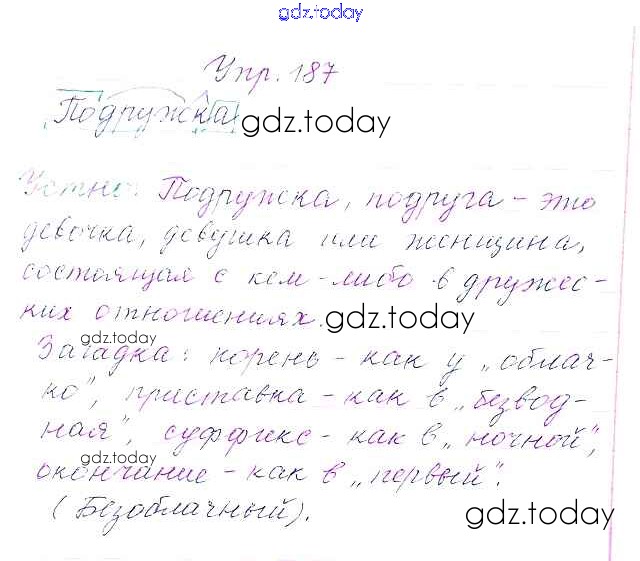 gdz.today
Упр. 187
Подружка gdz.today
Устно: Подружка, подруга - это
девочка, девушка или женщина,
состоящая с кем-либо в дружес-
ких отношениях. gdz.today
gdz.today
Загадка: корень - как у „облач-
ко", приставка - как в „безвод-
ная", суффикс - как в „ночной",
gdz.today
окончание - как в „первый".
(Безоблачный).
gdz.today